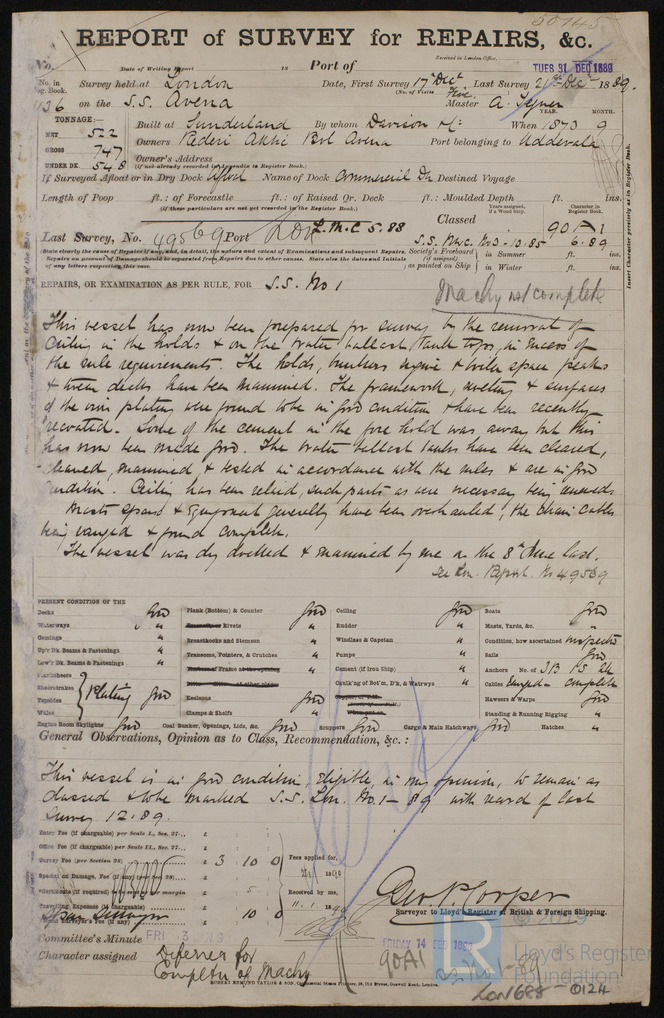 50145
REPORT of SURVEY for REPAIRS, &c.
No. Date of Writing Report 18 Port of Received in London Office, TUES 31 DEC 1889
No. in Survey held at London Date, First Survey 17th Decr Last Survey 21st Decr 1889.
Reg. Book. (No. of Visits Five)
136 on the S.S. Avena Master A. Tegner
TONNAGE:— YEAR. MONTH.
NET 522 Built at Sunderland By whom Davison & Co. When 1873 9
GROSS 747 Owners Rederi Aktie Bol Avena Port belonging to Uddevala
UNDER DK. 548 Owner's Address
(if not already recorded in Appendix to Register Book.)
If Surveyed Afloat or in Dry Dock Afloat Name of Dock Commercial Dk Destined Voyage
Length of Poop ft. : of Forecastle ft. : of Raised Qr. Deck ft. : Moulded Depth ft. ins.
(if these particulars are not yet recorded in the Register Book.)
Years assigned, if a Wood Ship. Character in Register Book.
Insert Character precisely as in Register Book.
Classed 90 A 1
Last Survey, No. 49569 Port Lon L.M.C 5.88 S.S. No 3-10.85 6.89
State clearly the cause of Repairs if any, and, in detail, the nature and extent of Examinations and subsequent Repairs.
Repairs on account of Damage should be separated from Repairs due to other causes. State also the dates and initials
of any letters respecting this case.
Society's Freeboard (if assigned) as painted on Ship in Summer ft. ins.
in Winter ft. ins.
REPAIRS, OR EXAMINATION AS PER RULE, FOR S.S. No 1
Machy not complete
This vessel has now been prepared for survey by the removal of
Ceiling in the holds & on the water ballast tank tops, in excess of
the rule requirements. The holds, bunkers engine & boiler space peaks
& tween decks have been examined. The framework, riveting & surfaces
of the iron plating were found to be in good condition & have been recently
recoated. Some of the cement in the fore hold was away but this
has now been made good. The water ballast tanks have been cleared,
cleaned, examined & tested in accordance with the rules & are in good
condition. Ceiling has been relaid, such parts as were necessary being renewed.
Masts spars & equipment generally have been overhauled, the chain cables
being ranged & found complete.
The vessel was dry docked & examined by me on the 8th June last.
See Lon. Report. No 49569
PRESENT CONDITION OF THE
Decks Good Plank (Bottom) & Counter Good Ceiling Good Boats Good
Waterways Rivets Rudder Masts, Yards, &c.
Comings Breasthooks and Stemson Windlass & Capstan Condition, how ascertained inspected
Up'r Dk. Beams & Fastenings Transoms, Pointers, & Crutches Pumps Sails Good
Low'r Dk. Beams & Fastenings Cement (if Iron Ship) Anchors No. of
Plating Good Caulk'ng of Bot'm, D'k, & Watrwys Cables ranged - complete
Topsides Keelsons Good Hawsers & Warps Good
Wales Clamps & Shelfs Standing & Running Rigging
Engine Room Skylights Good Coal Bunker, Openings, Lids, &c. Good Scuppers Good Cargo & Main Hatchways Good Hatches
General Observations, Opinion as to Class, Recommendation, &c. :
This vessel is in good condition, eligible, in my opinion, to remain as
classed & to be marked S.S. Lon. No. 1-89 with record of last
survey 12.89.
Entry Fee (if chargeable) per Scale I., Sec. 27
Office Fee (if chargeable) per Scale II., Sec. 27
Survey Fee (per Section 28) £ 3 10 0 Fees applied for
Special or Damage, Fee (if any) (per Sec. 28)
Certificate (if required) 5
Travelling Expenses (if chargeable) Received by me,
10 0 11.1.1890
Geo. P. Cooper
Surveyor to Lloyd's Register of British & Foreign Shipping.
Committee's Minute FRI 3 JAN 9 FRIDAY 14 FEB 1890
Character assigned Deferred for 90A1
Completn of Machy ss No 1-89
ROBERT EDMUND TAYLOR & SON, Commercial Steam Printers, 19, Old Street, Goswell Road, London.
© 2019
LR
Lloyd's Register
Foundation
LON688-0124